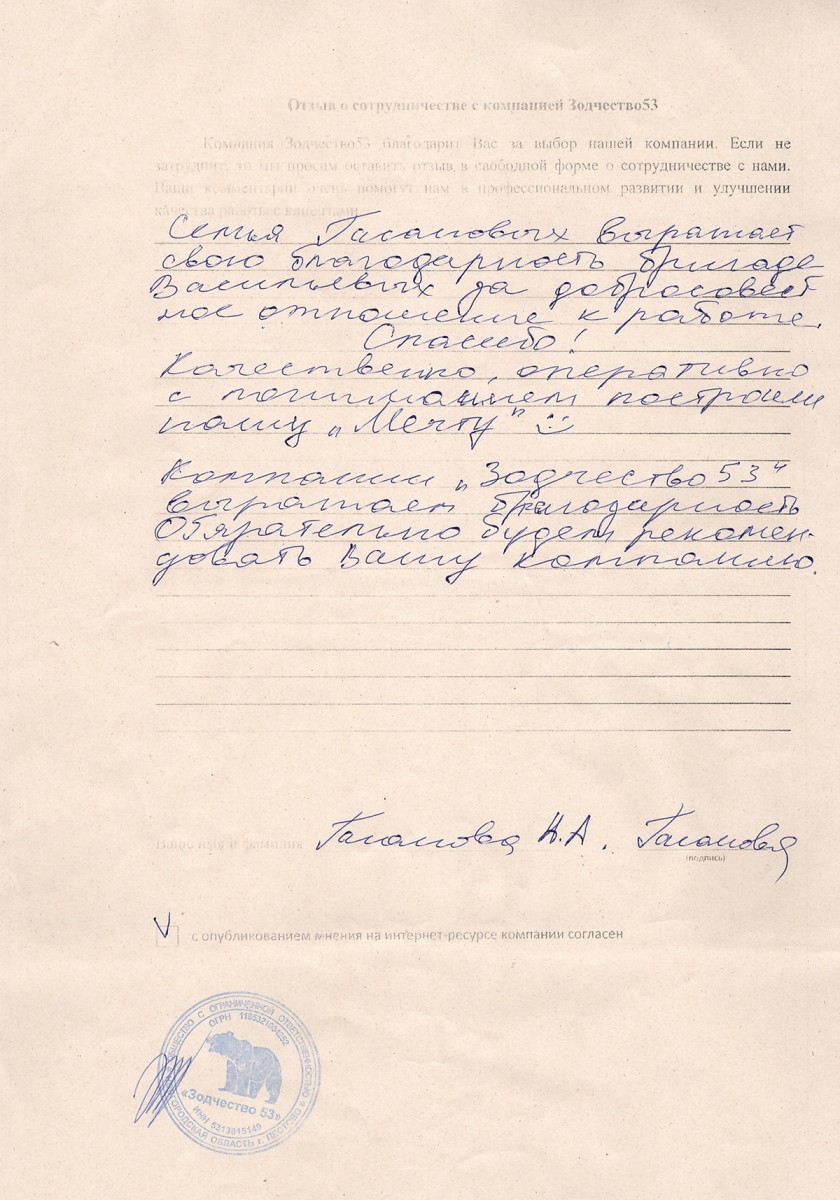 Отзыв о сотрудничестве с компанией Зодчество53
Компания Зодчество53 благодарит Вас за выбор нашей компании. Если не
затруднит, то мы просим оставить отзыв в свободной форме о сотрудничестве с нами.
Ваши комментарии очень помогут нам в профессиональном развитии и улучшении
качества работы с клиентами.
Семья Гасановых выражает
свою благодарность бригаде
Васильевых за добросовест
ное отношение к работе.
Спасибо!
Качественно, оперативно
с пониманием построили
нашу „Мечту" :)
Компании „Зодчество 53"
выражаем благодарность
Обязательно будем рекомен-
довать Вашу компанию.
Ваше имя и фамилия Гасанова Н.А. Гасановa
(подпись)
V с опубликованием мнения на интернет-ресурсе компании согласен
ОБЩЕСТВО С ОГРАНИЧЕННОЙ ОТВЕТСТВЕННОСТЬЮ
ОГРН
«Зодчество 53»
ИНН 5313015149
ОБЛАСТЬ г. ПЕСТОВО